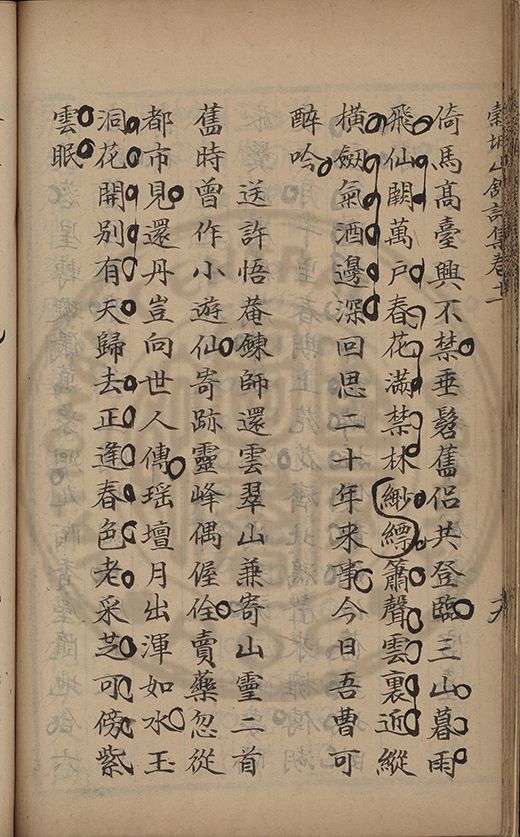 倚馬高臺興不禁垂髫舊侣共登臨三山暮雨
飛仙闕萬戶春花滿禁林縹緲簫聲雲裏近縱
橫劔氣酒邊深回思二十年来事今日吾曹可
醉吟
送許悟菴鍊師還雲翠山兼寄山靈二首
舊時曾作小遊仙寄跡靈峰偶偓佺賣藥忽從
都市見還丹豈向世人傳瑶壇月出渾如水玉
洞花開別有天歸去正逢春色老采芝可傍紫
雲眠